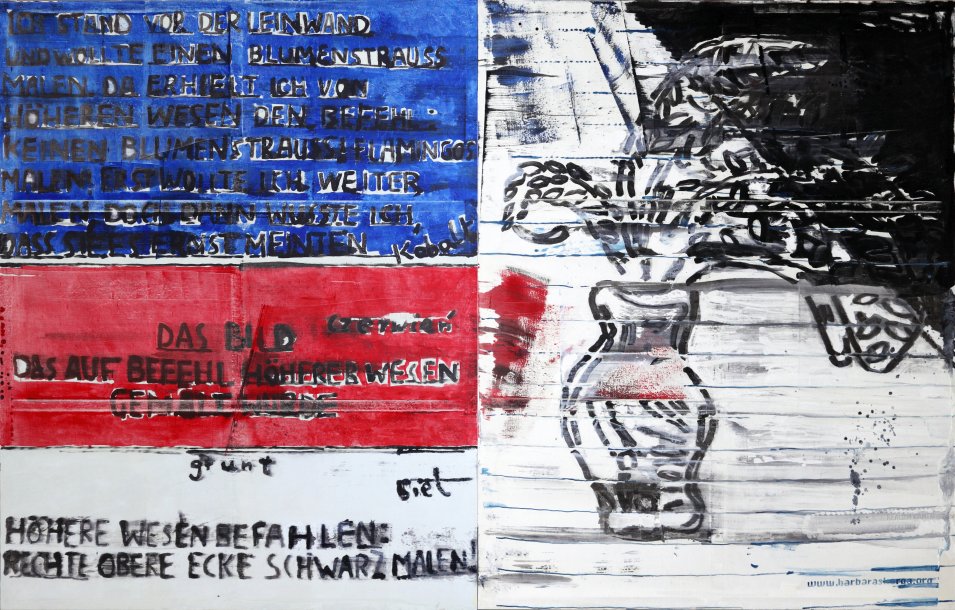 ICH STAND VOR DER LEINWAND
UND WOLLTE EINEN BLUMENSTRAUSS
MALEN. DA ERHIELT ICH VON
HÖHEREN WESEN DEN BEFEHL:
KEINEN BLUMENSTRAUSS! FLAMINGOS
MALEN! ERST WOLLTE ICH WEITER
MALEN, DOCH DANN WUSSTE ICH,
DASS SIE ES ERNST MEINTEN.
Kobalt
czerwień
DAS BILD
DAS AUF BEFEHL HÖHERER WESEN
GEMALT WURDE
grunt
HÖHERE WESEN BEFAHLEN:
RECHTE OBERE ECKE SCHWARZ MALEN!